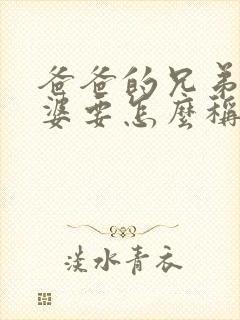 爸爸的兄弟
婆要怎麼稱
淡水青衣